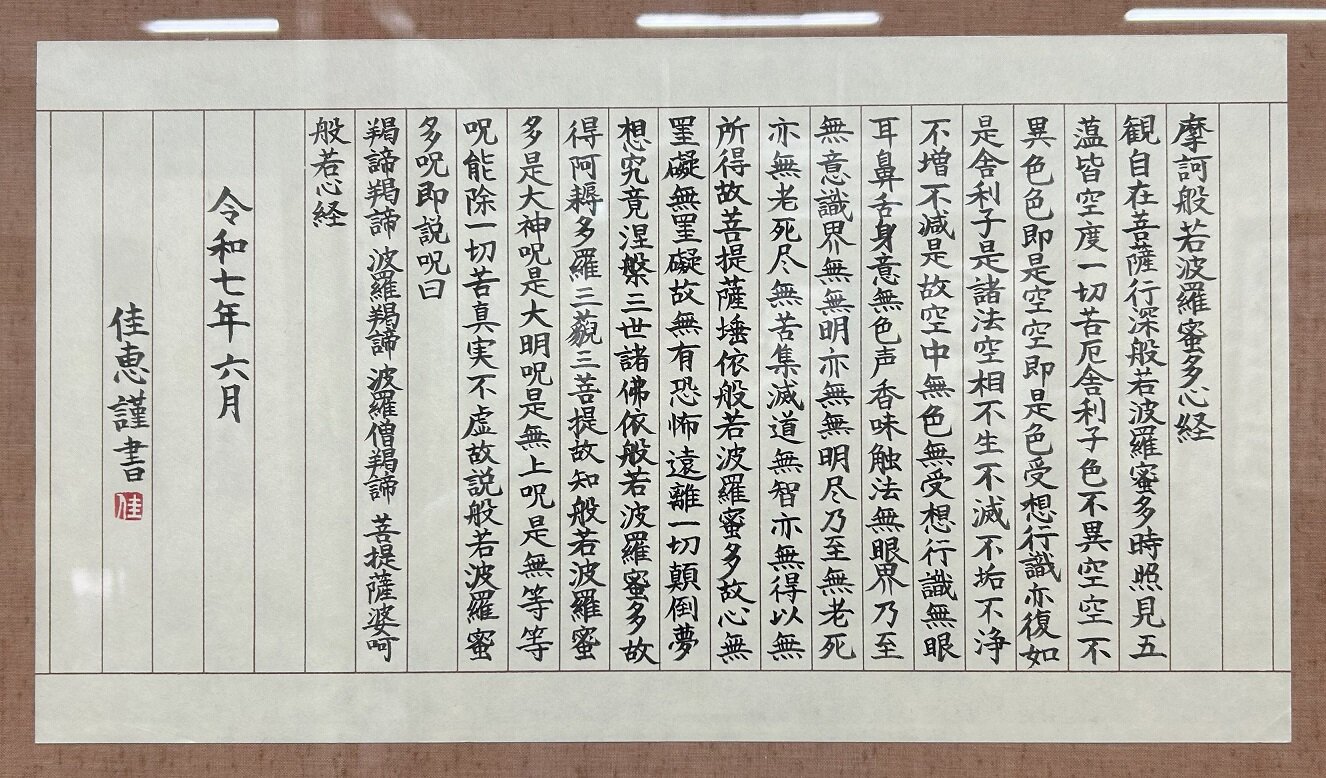 摩訶般若波羅蜜多心経
観自在菩薩行深般若波羅蜜多時照見五
薀皆空度一切苦厄舎利子色不異空空不
異色色即是空空即是色受想行識亦復如
是舎利子是諸法空相不生不滅不垢不浄
不増不減是故空中無色無受想行識無眼
耳鼻舌身意無色声香味触法無眼界乃至
無意識界無無明亦無無明尽乃至無老死
亦無老死尽無苦集滅道無智亦無得以無
所得故菩提薩埵依般若波羅蜜多故心無
罣礙無罣礙故無有恐怖遠離一切顛倒夢
想究竟涅槃三世諸佛依般若波羅蜜多故
得阿耨多羅三藐三菩提故知般若波羅蜜
多是大神呪是大明呪是無上呪是無等等
呪能除一切苦真実不虚故説般若波羅蜜
多呪即説呪曰
羯諦羯諦 波羅羯諦 波羅僧羯諦 菩提薩婆呵
般若心経
令和七年六月
佳恵謹書 佳